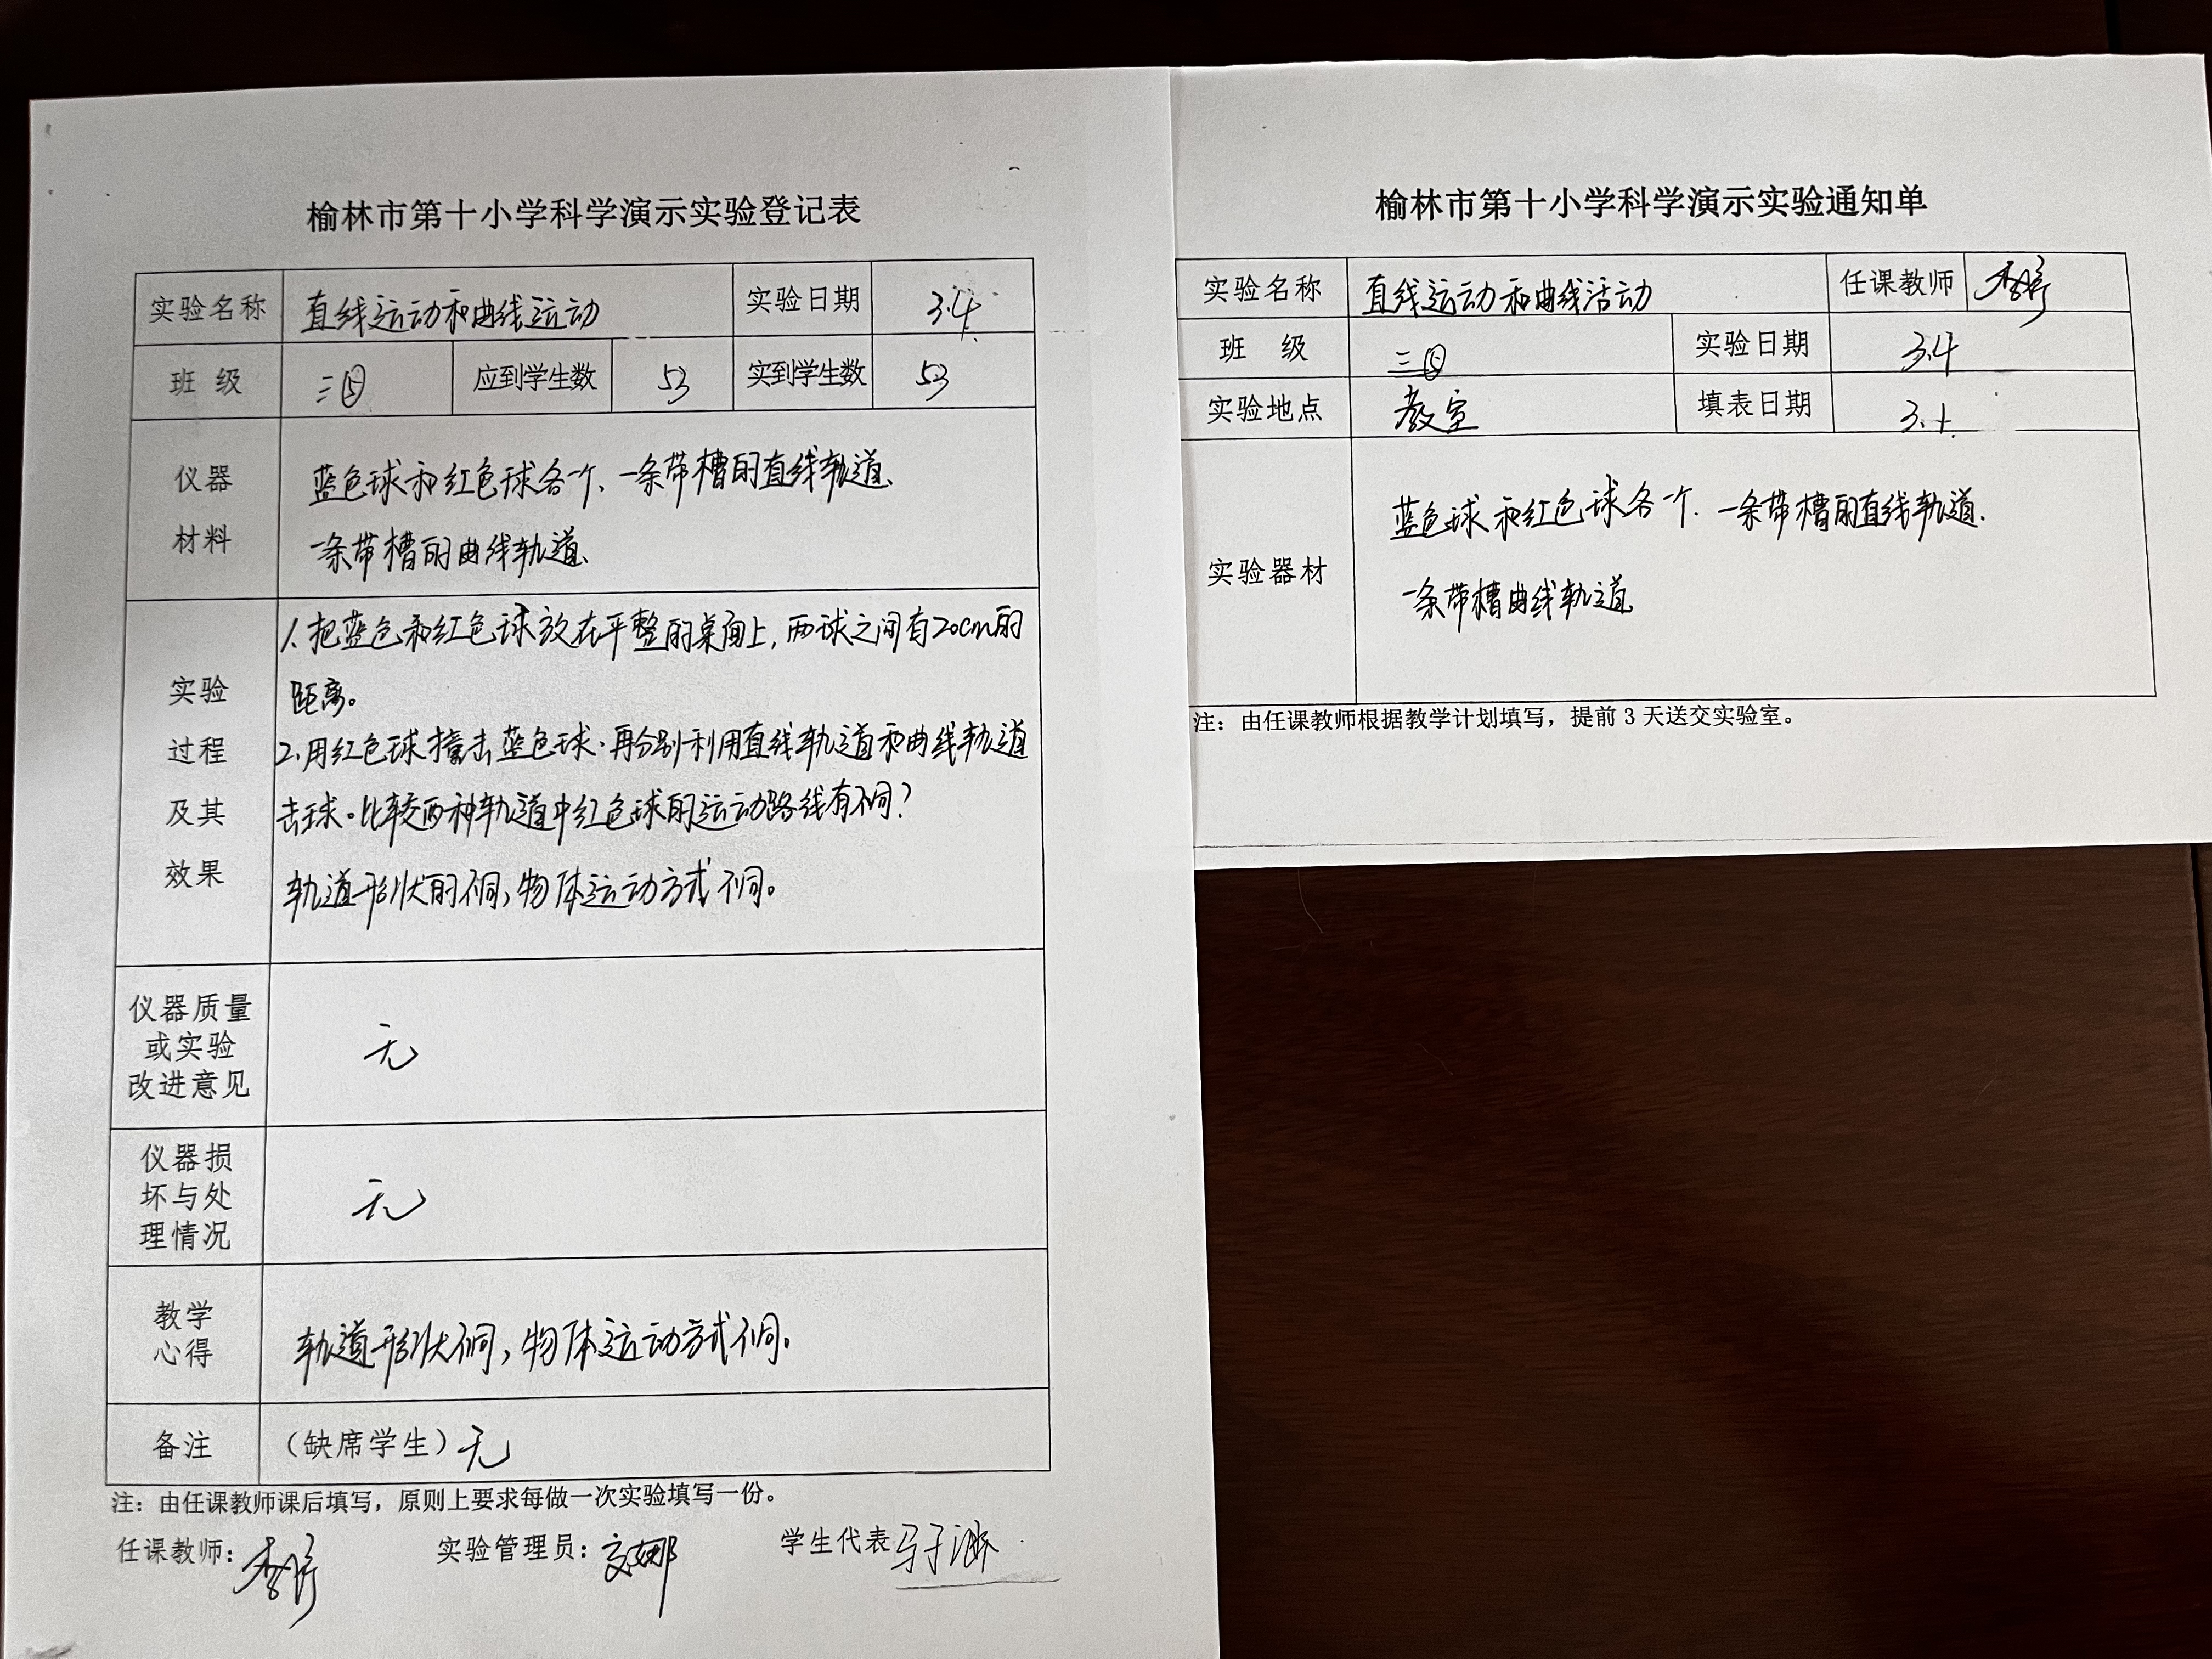 榆林市第十小学科学演示实验登记表
实验名称 直线运动和曲线运动 实验日期 3.4
班 级 三 应到学生数 53 实到学生数 53
仪器
材料
蓝色球和红色球各一个、一条带槽的直线轨道、
一条带槽的曲线轨道、
实验
过程
及其
效果
1、把蓝色和红色球放在平整的桌面上，两球之间有20cm的
距离。
2、用红色球撞击蓝色球、再分别利用直线轨道和曲线轨道
击球。比较两种轨道中红色球的运动路线有不同？
轨道形状的不同，物体运动方式不同。
仪器质量
或实验
改进意见
无
仪器损
坏与处
理情况
无
教学
心得
轨道形状不同，物体运动方式不同。
备注 （缺席学生）无
注：由任课教师课后填写，原则上要求每做一次实验填写一份。
任课教师： 实验管理员： 学生代表
榆林市第十小学科学演示实验通知单
实验名称 直线运动和曲线活动 任课教师
班 级 三 实验日期 3.4
实验地点 教室 填表日期
实验器材
蓝色球和红色球各一个、一条带槽的直线轨道.
一条带槽曲线轨道
注：由任课教师根据教学计划填写，提前3天送交实验室。